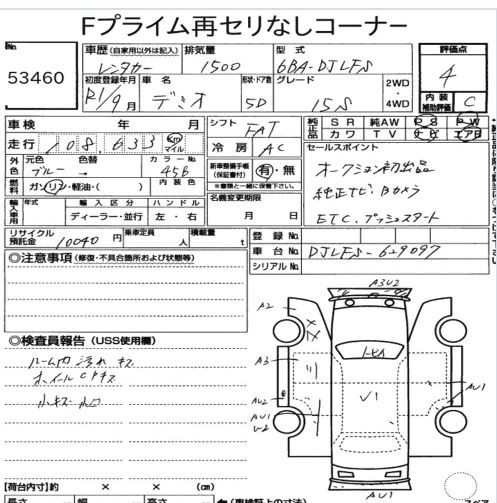 Fプライム再セリなしコーナー
No. 53460
車歴(自家用以外は記入) 排気量 型式 評価点
レンタカー 1500 6BA-DJLFS 4
初度登録年月 車名 形状・ドア数 グレード 2WD・4WD
R1/9月 デミオ 5D 15S
内装補助評価 C
車検 年 月
走行 108,633 km マイル
シフト FAT
冷房 AC
純正品 SR 純AW PS PW
カワ TV ナビ エアB
外色 元色 色替 カラーNo.
ブルー → 45B
燃料 ガソリン・軽油・( ) 内装色
新車整備手帳(保証書付) 有・無
※書類と一緒に保管下さい。
セールスポイント
オークション初出品
純正ナビ Bカメラ
ETC. プッシュスタート
輸入車用 年式 輸入区分 ハンドル
ディーラー・並行 左・右
名義変更期限
月 日
リサイクル預託金 10040円 乗車定員 人 積載量 t
登録No.
車台No. DJLFS-629097
シリアルNo.
◎注意事項(修復・不具合箇所および状態等)
◎検査員報告(USS使用欄)
ルーム内汚れ キズ
ホイールCPキズ
小キズ 凹
A3U2
A2
トビA
A3
V1
AU1
AU2
AU1
U-2
AU1
【荷台内寸】約 × × (cm)